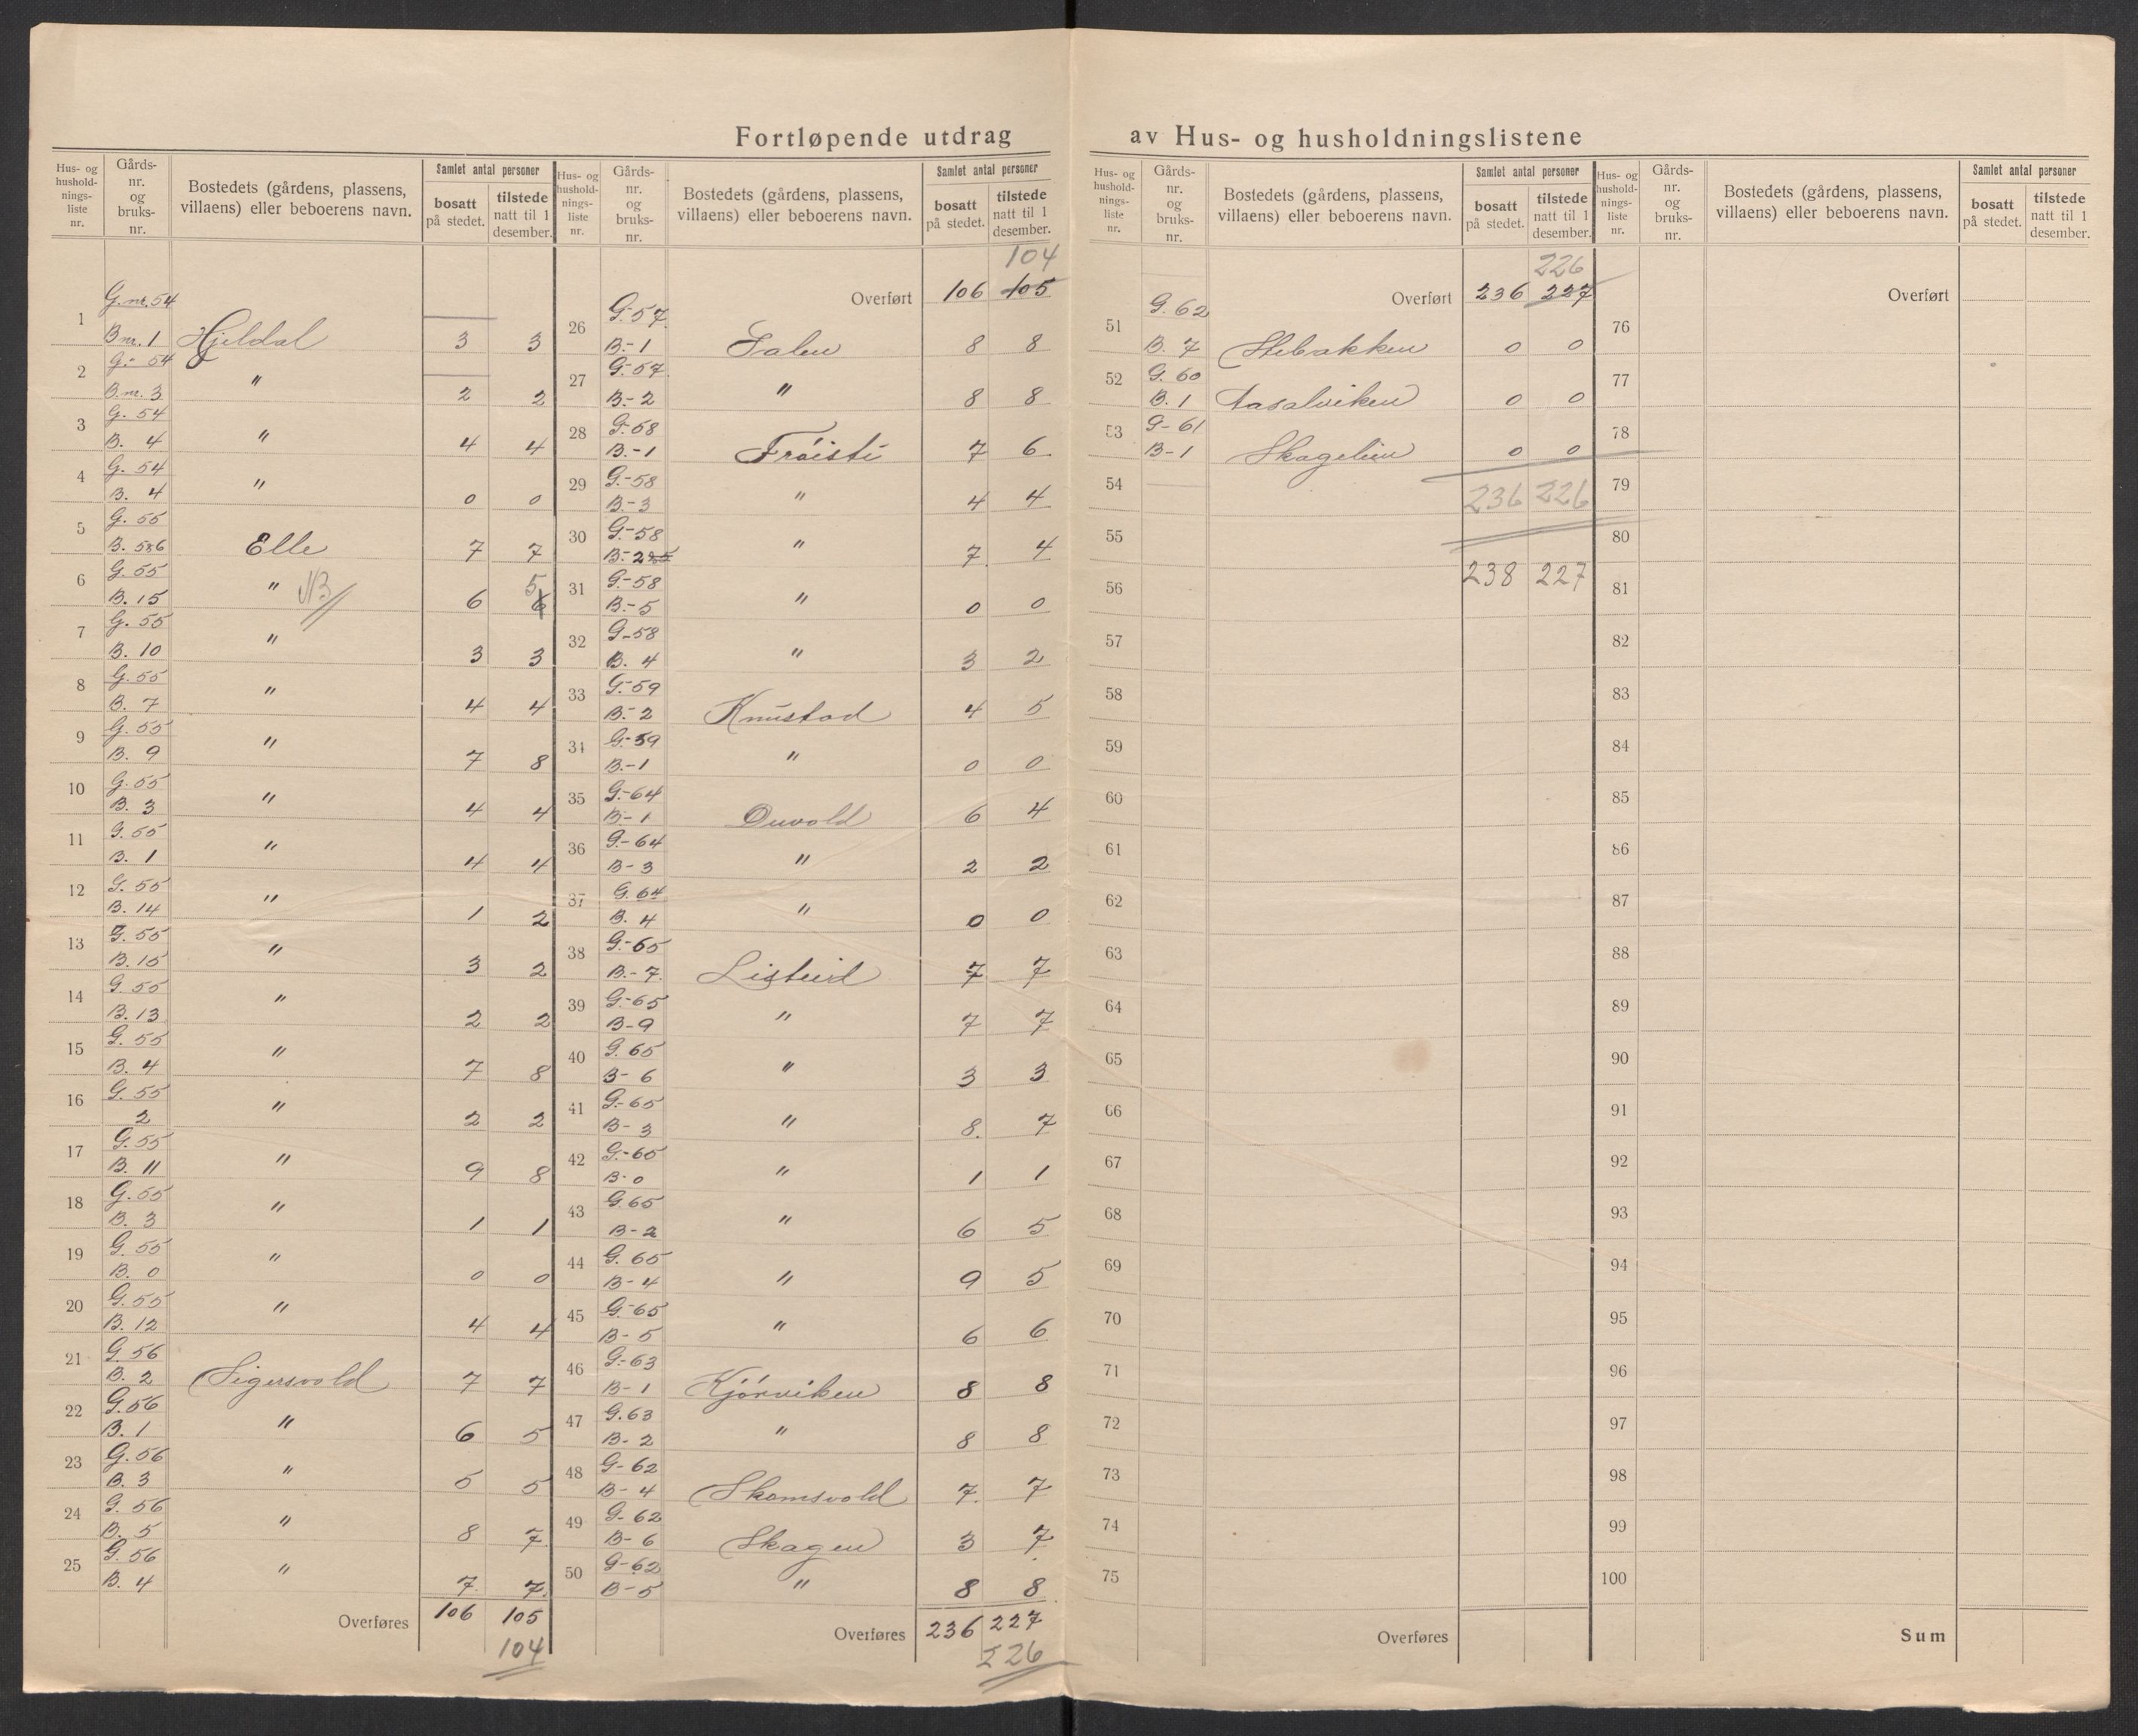 Fortløpende utdrag av Hus- og husholdningslistene
Hus- og hushold-nings-liste nr. | Gårds-nr. og bruks-nr. | Bostedets (gårdens, plassens, villaens) eller beboerens navn. | Samlet antal personer | bosatt på stedet. | tilstede natt til 1 desember.
1 G.nr. 54 B nr. 1 Hjeldal 3 3
2 G.- 54 B.nr. 3 " 2 2
3 G. 54 B. 4 " 4 4
4 G. 54 B. 4 " 0 0
5 G. 55 B. 5&6 Elle 7 7
6 G. 55 B. 15 " NB 6 6 5
7 G. 55 B. 10 " 3 3
8 G. 55 B. 7 " 4 4
9 G. 55 B. 9 " 7 8
10 G. 55 B. 3 " 4 4
11 G. 55 B. 1 " 4 4
12 G. 55 B. 14 " 1 2
13 G. 55 B. 15 " 3 2
14 G. 55 B. 13 " 2 2
15 G. 55 B. 4 " 7 8
16 G. 55 2 " 2 2
17 G. 55 B. 11 " 9 8
18 G. 55 B. 3 " 1 1
19 G. 55 B. 0 " 0 0
20 G. 55 B. 12 " 4 4
21 G. 56 B. 2 Sigersvold 7 7
22 G. 56 B. 1 " 6 5
23 G. 56 B. 3 " 5 5
24 G. 56 B. 5 " 8 7
25 G. 56 B. 4 " 7 7
Overføres 106 105
104
Hus- og hushold-nings-liste nr. | Gårds-nr. og bruks-nr. | Bostedets (gårdens, plassens, villaens) eller beboerens navn. | Samlet antal personer | bosatt på stedet. | tilstede natt til 1 desember.
104
Overført 106 105
26 G.-57 B.-1 Salen 8 8
27 G.-57 B.-2 " 8 8
28 G.-58 B.-1 Frøisti 7 6
29 G.-58 B.-3 " 4 4
30 G.-58 B.-2 " 7 4
31 G.-58 B.-5 " 0 0
32 G-58 B. 4 " 3 2
33 G.-59 B.-2 Knustad 4 5
34 G.-59 B.-1 " 0 0
35 G.-64 B-1 Duvold 6 4
36 G.-64 B-3 " 2 2
37 G. 64 B. 4 " 0 0
38 G.-65 B.-7 Listeid 7 7
39 G.-65 B-9 " 7 7
40 G. 65 B-6 " 3 3
41 G.-65 B-3 " 8 7
42 G.-65 B-0 " 1 1
43 G. 65 B-2 " 6 5
44 G. 65 B-4 " 9 5
45 G.-65 B-5 " 6 6
46 G.-63 B-1 Kjørviken 8 8
47 G. 63 B-2 " 8 8
48 G-62 B-4 Skomsvold 7 7
49 G-62 B-6 Skagen 3 7
50 G-62 B-5 " 8 8
Overføres 236 227
226
Hus- og hushold-nings-liste nr. | Gårds-nr. og bruks-nr. | Bostedets (gårdens, plassens, villaens) eller beboerens navn. | Samlet antal personer | bosatt på stedet. | tilstede natt til 1 desember.
226
Overført 236 227
51 G. 62 B. 7 Stebakken 0 0
52 G. 60 B. 1 Aasalviken 0 0
53 G-61 B-1 Skagelien 0 0
54 236 226
55
56 238 227
57
58
59
60
61
62
63
64
65
66
67
68
69
70
71
72
73
74
75
Overføres
Hus- og hushold-nings-liste nr. | Gårds-nr. og bruks-nr. | Bostedets (gårdens, plassens, villaens) eller beboerens navn. | Samlet antal personer | bosatt på stedet. | tilstede natt til 1 desember.
Overført
76
77
78
79
80
81
82
83
84
85
86
87
88
89
90
91
92
93
94
95
96
97
98
99
100
Sum